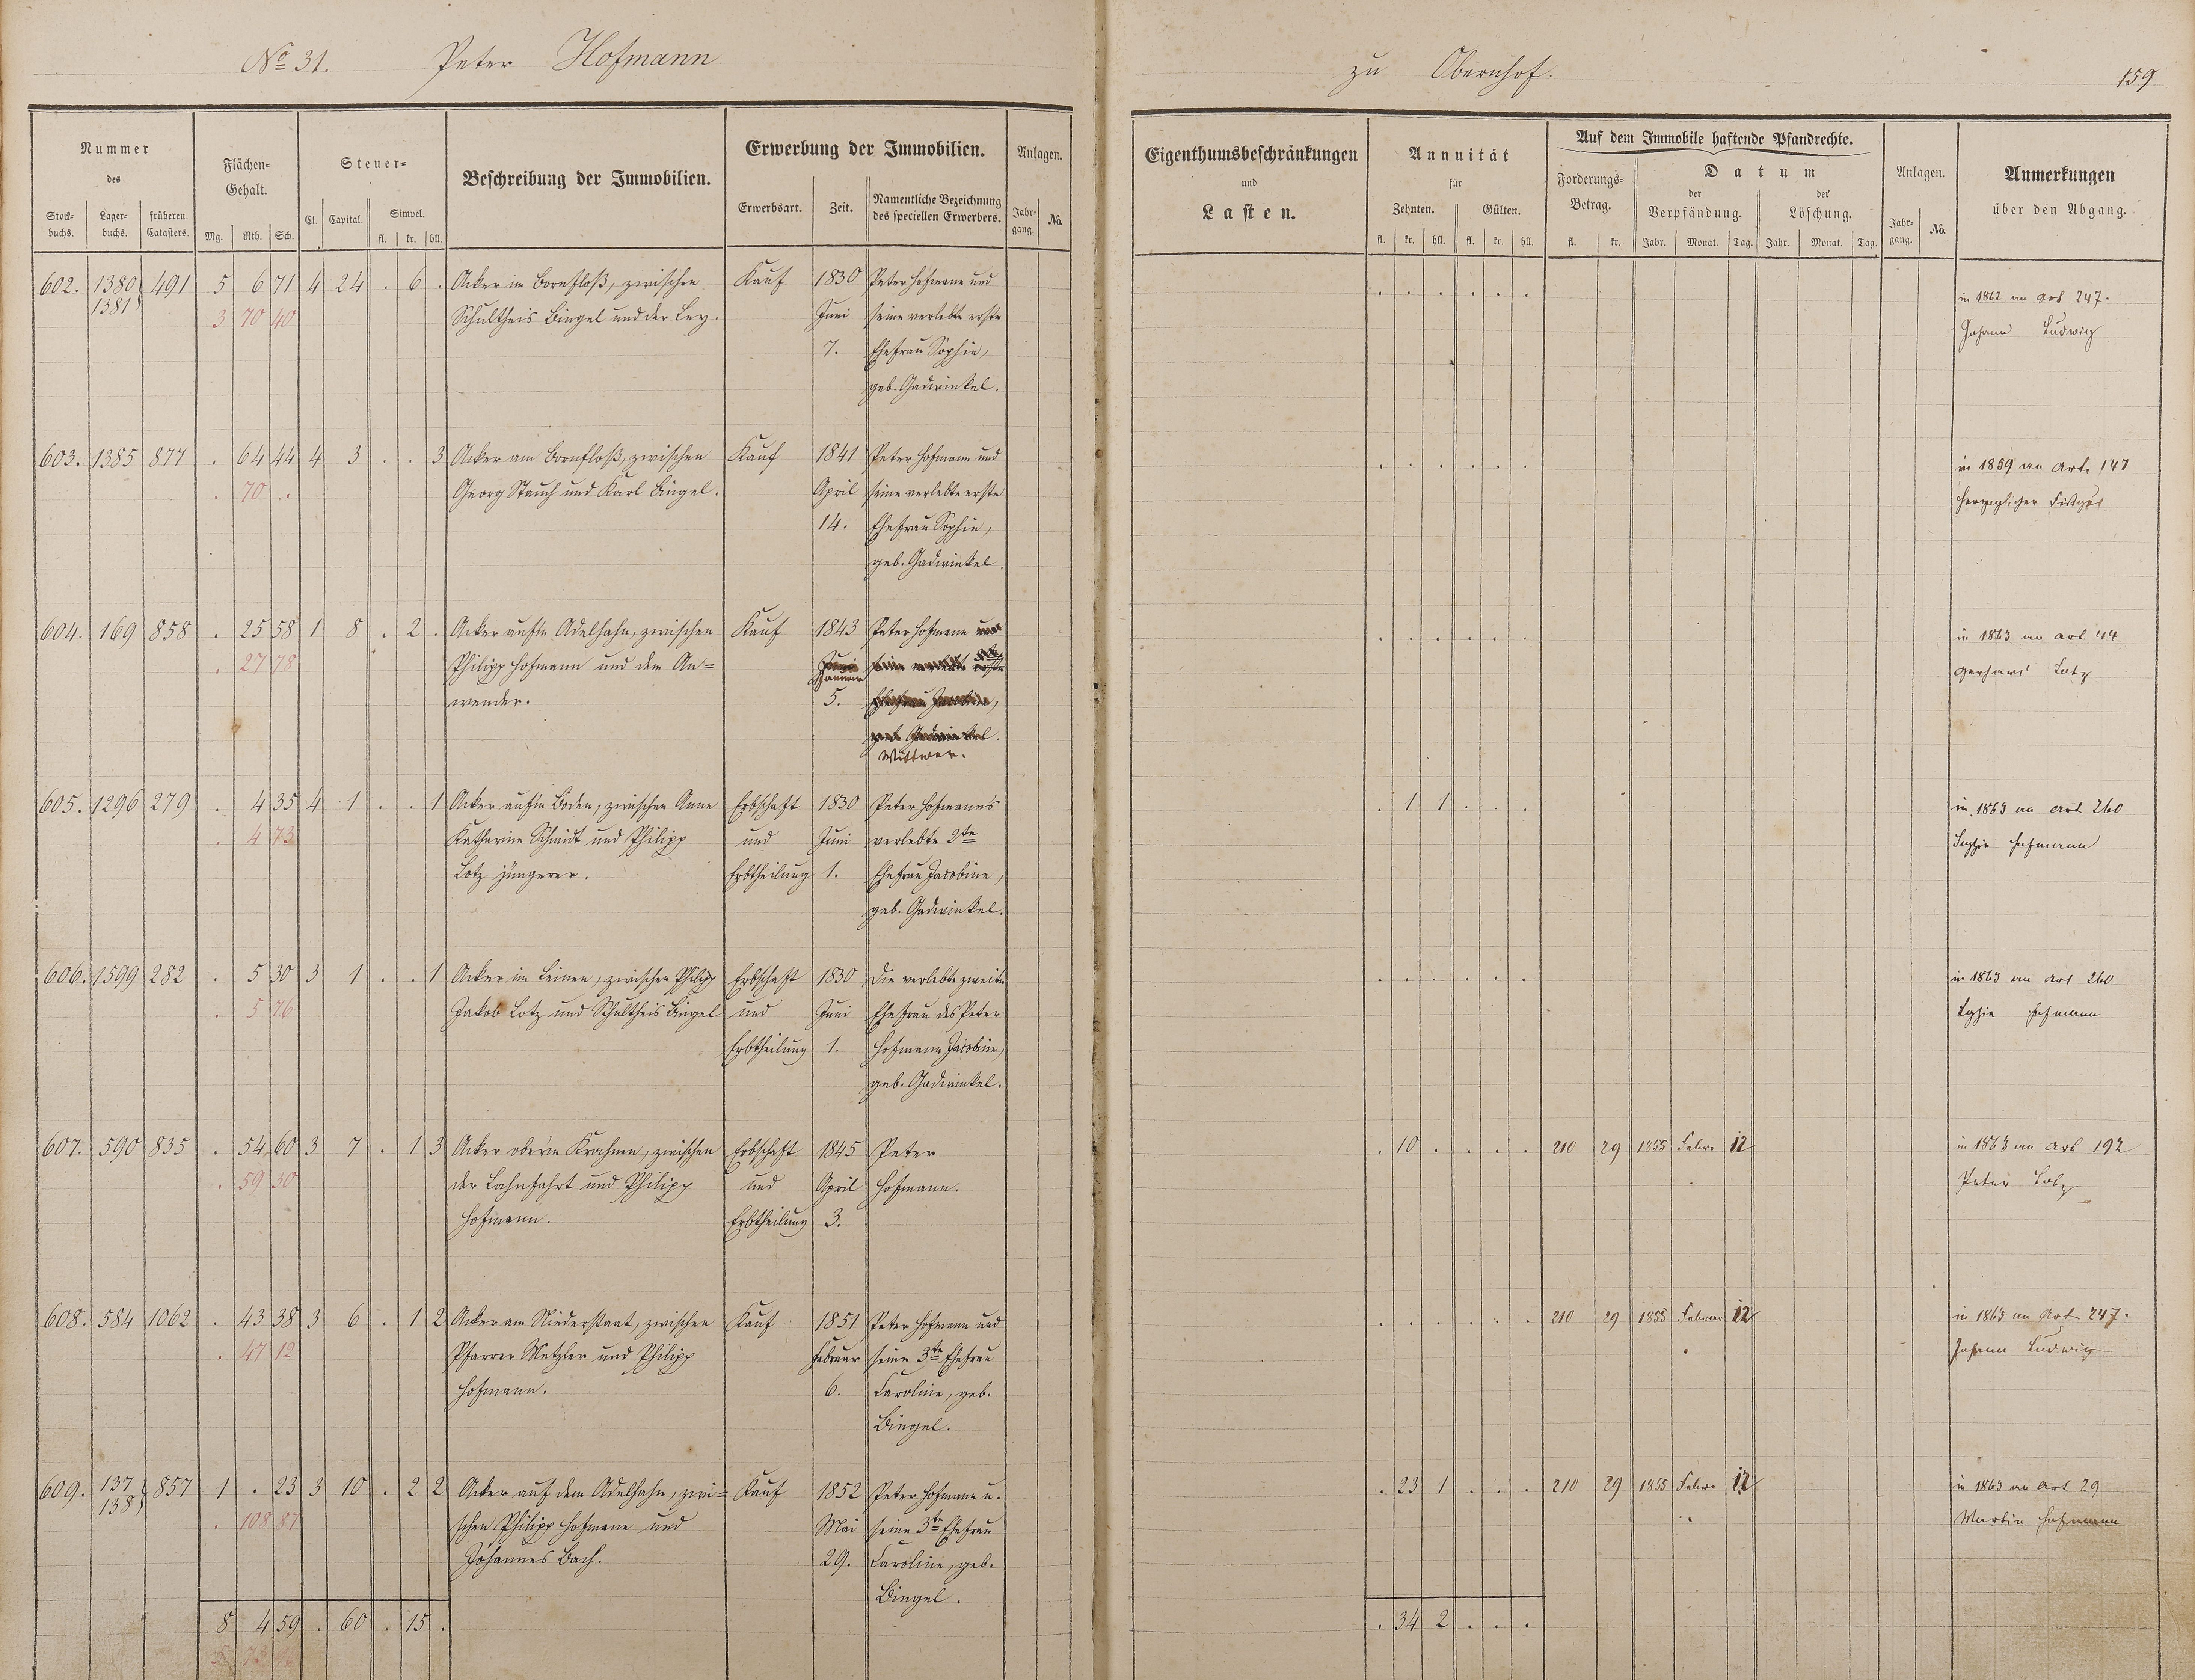 No 31. Peter Hofmann
zu Obernhof.
159
Nummer des
Stock-buchs. Lager-buchs. früheren Catasters.
Flächen-Gehalt.
Mg. Rth. Sch.
Steuer-
Cl. Capital. Simpel.
fl. kr. hll.
Beschreibung der Immobilien.
Erwerbung der Immobilien.
Erwerbsart. Zeit. Namentliche Bezeichnung des speciellen Erwerbers.
Anlagen.
Jahr-gang. No.
Eigenthumsbeschränkungen
und
Lasten.
Annuität
für
Zehnten. Gülten.
fl. kr. hll. fl. kr. hll.
Auf dem Immobile haftende Pfandrechte.
Forderungs-Betrag.
fl. kr.
Datum
der Verpfändung. der Löschung.
Jahr. Monat. Tag. Jahr. Monat. Tag.
Anlagen.
Jahr-gang. No.
Anmerkungen
über den Abgang.
602. 1380 491 5 6 71 4 24 . 6 . Acker im Bornfloß, zwischen Kauf 1830 Peter Hofmann und
1381 3 70 40 Schultheis Bingel und der Ley. Juni seine verlebte erste
7. Ehefrau Sophie,
geb. Gadwinkel.
in 1862 an Art 247.
Johann Ludwig
603. 1385 877 . 64 44 4 3 . . 3 Acker am Bornfloß, zwischen Kauf 1841 Peter Hofmann und
. 70 . . Georg Stauch und Karl Bingel. April seine verlebte erste
14. Ehefrau Sophie,
geb. Gadwinkel.
in 1859 an Art. 147
604. 169 858 . 25 58 1 8 . 2 . Acker auf'm Adelhahn, zwischen Kauf 1843 Peter Hofmann und
. 27 78 Philipp Hofmann und dem An= Januar
wender. 5.
Wittwer.
in 1863 an Art 44
Gerhard Lotz
605. 1296 279 . 4 35 4 1 . . 1 Acker auf'm Boden, zwischen Anne Erbschaft 1830 Peter Hofmann's . 1 1 . . .
. 4 73 Katharine Schmidt und Philipp und Juni verlebte 2te
Lotz jüngerer. Erbtheilung 1. Ehefrau Jacobine,
geb. Gadwinkel.
in 1863 an Art 260
Sophie Hofmann
606. 1599 282 . 5 30 3 1 . . 1 Acker im Leinen, zwischen Philipp Erbschaft 1830 Die verlebte zweite
. 5 76 Jakob Lotz und Schultheis Bingel und Juni Ehefrau des Peter
Erbtheilung 1. Hofmann Jacobine,
geb. Gadwinkel.
in 1863 an Art 260
Sophie Hofmann
607. 590 835 . 54 60 3 7 . 1 3 Acker ober'm Krahnen, zwischen Erbschaft 1845 Peter . 10 . . . . 210 29 1855 Febr. 12
. 59 30 der Lahnfahrt und Philipp und April Hofmann.
Hofmann. Erbtheilung 3.
in 1863 an Art 192
Peter Lotz
608. 584 1062 . 43 38 3 6 . 1 2 Acker am Niederstaat, zwischen Kauf 1851 Peter Hofmann und 210 29 1855 Februar 12
. 47 12 Pfarrer Metzler und Philipp Februar seine 3te Ehefrau
Hofmann. 6. Caroline, geb.
Bingel.
in 1863 an Art. 247.
Johann Ludwig
609. 137 857 1 . 23 3 10 . 2 2 Acker auf dem Adelhahn, zwi= Kauf 1852 Peter Hofmann u. . 23 1 . . . 210 29 1855 Febr. 12
138 . 108 87 schen Philipp Hofmann und Mai seine 3te Ehefrau
Johannes Bach. 29. Caroline, geb.
Bingel.
in 1863 an Art 29
Martin Hofmann
8 4 59 . 60 . 15 . . 34 2 . . .